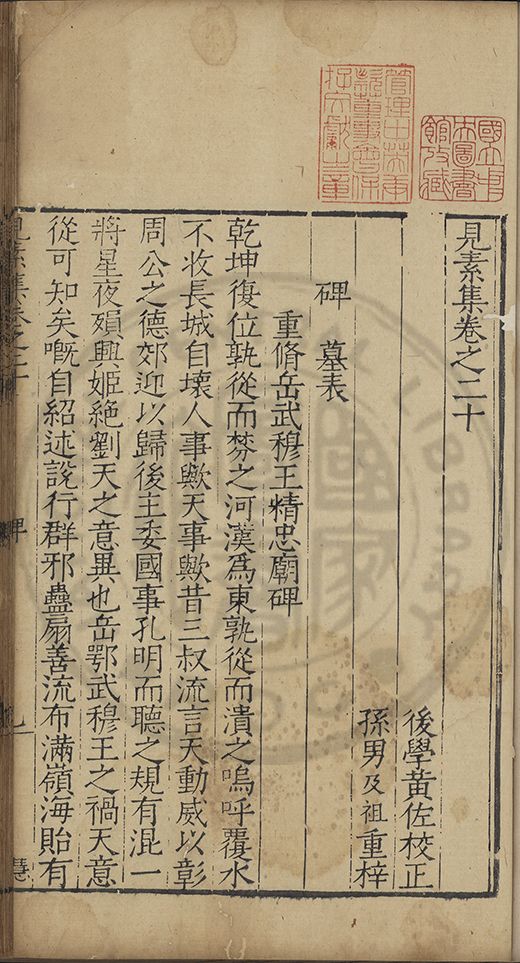 見素集卷之二十
後學黃佐校正
孫男及祖重梓
碑 墓表
重脩岳武穆王精忠廟碑
乾坤復位孰從而棼之河漢爲東孰從而潰之嗚呼覆水
不收長城自壞人事歟天事歟昔三叔流言天動威以彰
周公之德郊迎以歸後主委國事孔明而聽之規有混一
將星夜殞興姬絕劉天之意異也岳鄂武穆王之禍天意
從可知矣嘅自紹述說行群邪蠱扇善流布滿嶺海貽有
國立中央圖書館攷藏
管理中英庚款董事會保存文獻之章